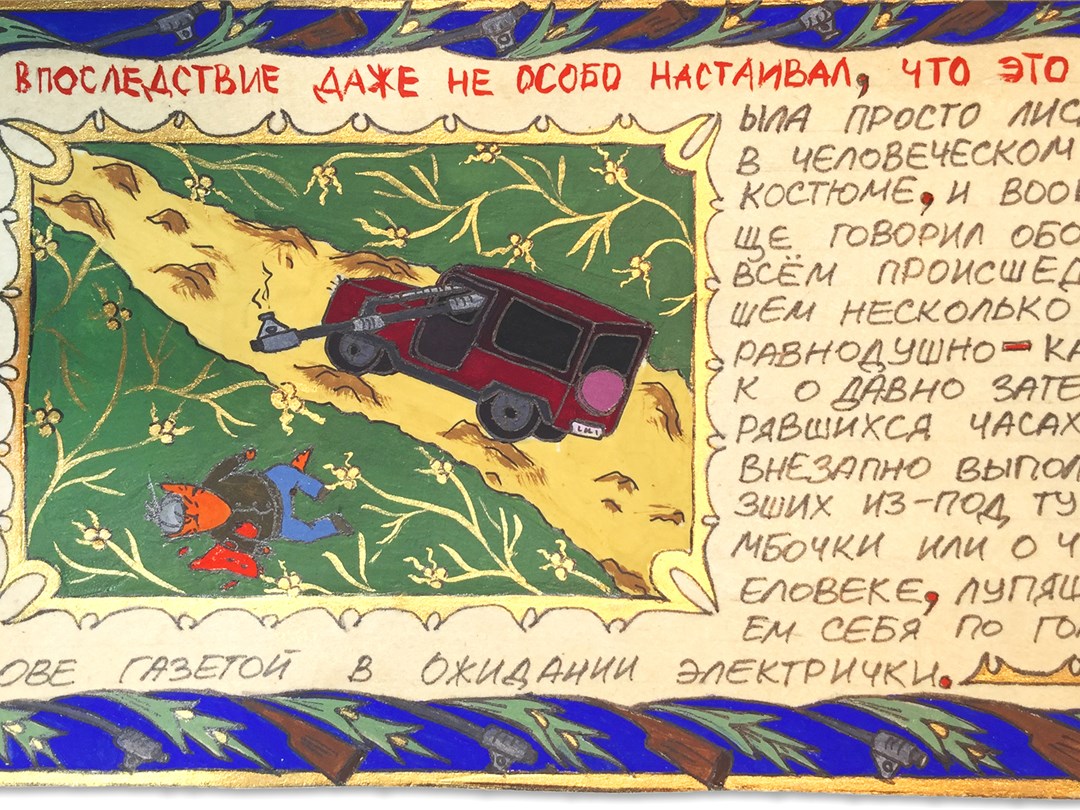 ВПОСЛЕДСТВИЕ ДАЖЕ НЕ ОСОБО НАСТАИВАЛ, ЧТО ЭТО
ЫЛА ПРОСТО ЛИС
В ЧЕЛОВЕЧЕСКОМ
КОСТЮМЕ, И ВООБ
ЩЕ ГОВОРИЛ ОБО
ВСЁМ ПРОИСШЕД
ШЕМ НЕСКОЛЬКО
РАВНОДУШНО - КА
К О ДАВНО ЗАТЕ
РЯВШИХСЯ ЧАСАХ
ВНЕЗАПНО ВЫПОЛ
ЗШИХ ИЗ-ПОД ТУ
МБОЧКИ ИЛИ О Ч
ЕЛОВЕКЕ, ЛУПЯЩ
ЕМ СЕБЯ ПО ГОЛ
ОВЕ ГАЗЕТОЙ В ОЖИДАНИИ ЭЛЕКТРИЧКИ.